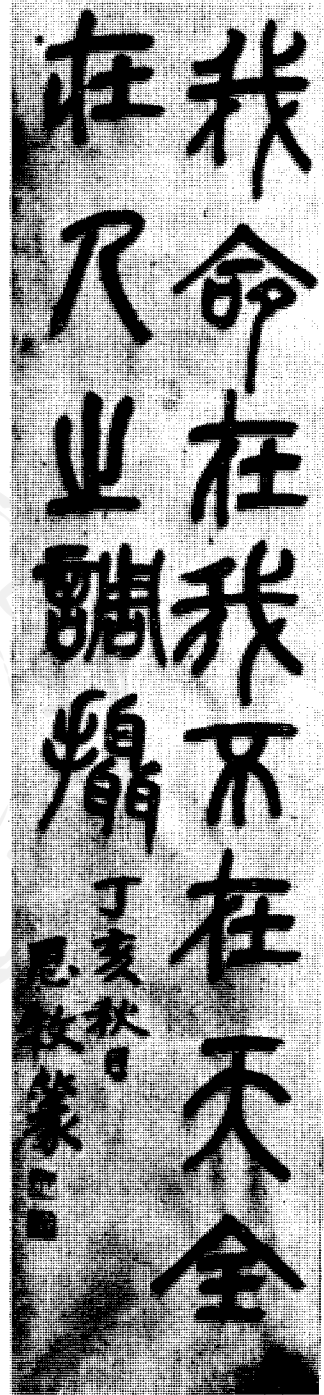 我命在我不在天全
在人之調攝
丁亥秋日
牧篆